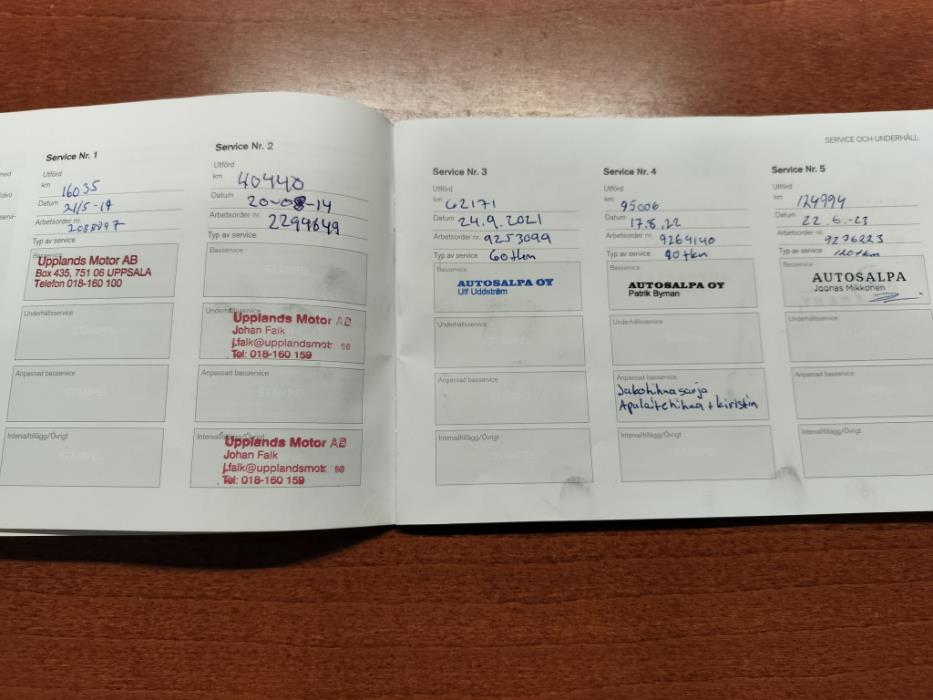 Service Nr. 1
Utförd
km 16035
Datum
Arbetsorder nr.
Typ av service
Upplands Motor AB
Box 435, 751 06 UPPSALA
Telefon 018-160 100
Underhållsservice
Anpassad basservice
Intervalltillägg/Övrigt
STÄMPEL
Service Nr. 2
Utförd
km 40440
Datum 20-08-14
Arbetsorder nr. 2299649
Typ av service
Basservice
STÄMPEL
Upplands Motor AB
Johan Falk
j.falk@upplandsmot
Tel: 018-160 159
Anpassad basservice
Upplands Motor AB
Johan Falk
j.falk@upplandsmot
Tel: 018-160 159
SERVICE OCH UNDERHÅLL
Service Nr. 3
Utförd
km 62171
Datum 24.9.2021
Arbetsorder nr. 9253099
Typ av service 60tkm
Basservice
AUTOSALPA OY
Ulf Uddström
Underhållsservice
Anpassad basservice
Intervalltillägg/Övrigt
STÄMPEL
Service Nr. 4
Utförd
km 95006
Datum 17.8.22
Arbetsorder nr. 9264140
Typ av service 90tkm
Basservice
AUTOSALPA OY
Patrik Byman
Underhållsservice
Anpassad basservice
Jakohihnasarja
Apulaitehihna + kiristin
Intervalltillägg/Övrigt
STÄMPEL
Service Nr. 5
Utförd
km 124994
Datum 22.6.-23
Arbetsorder nr. 9276223
Typ av service 120tkm
Basservice
AUTOSALPA
Joonas Mikkonen
Underhållsservice
Anpassad basservice
Intervalltillägg/Övrigt
STÄMPEL